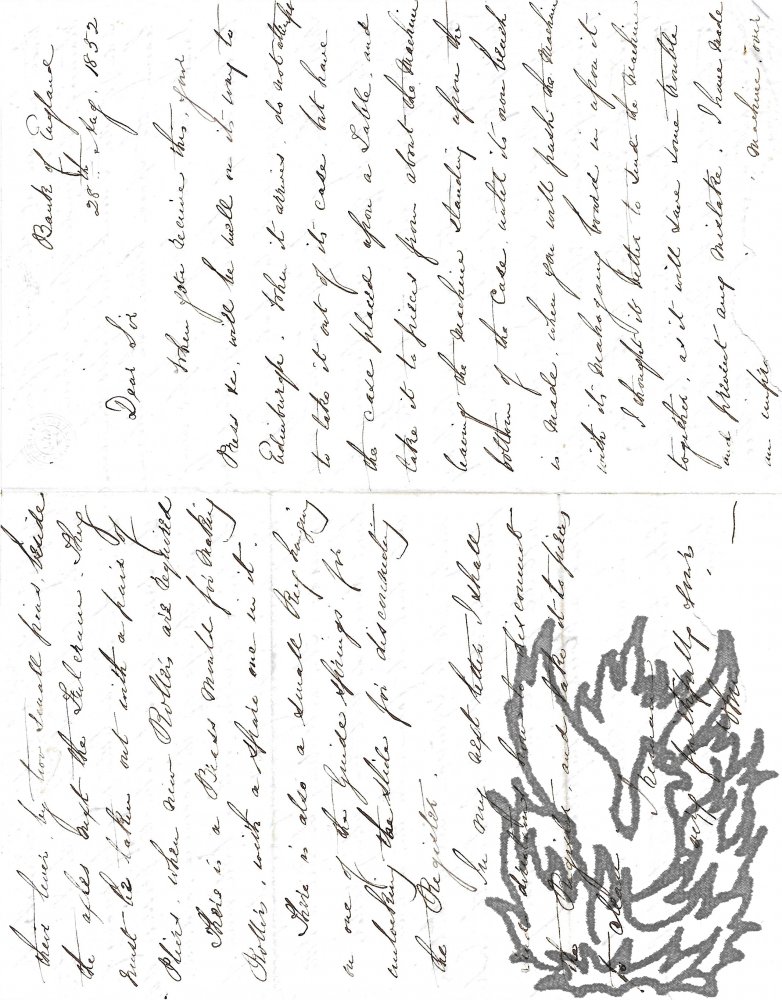 Bank of England
28th Aug. 1852
Dear Sir
When you receive this, your
Press &c, will be well on its way to
Edinburgh. When it arrives, do not attempt
to take it out of its case but have
the case placed upon a Table, and
take it to pieces from about the Machine
leaving the Machine standing upon the
bottom of the case, until its own bench
is made, when you will push the Machine
with its mahogany board in upon it.
I thought it better to send the Machine
together, as it will save some trouble
and prevent any mistake. I have made
an
Machine, your
their lever, by two small pins, beside
the axles next the Fulcrum. They
must be taken out with a pair of
Pliers, when new Rollers are required
There is a Brass Mould for making
Rollers, with a spare one in it.
There is also a small Key hanging
on one of the Guide springs for
unlocking the slide for disconnecting
the Register.
In my next letter I shall
how to disconnect
the Register and take it to pieces
to clean
I remain
faithfully yours